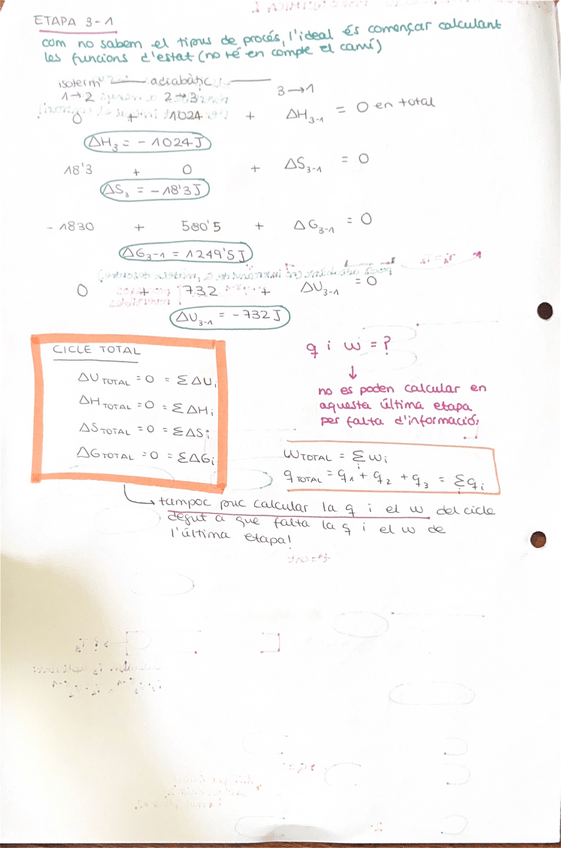 ETAPA 3-1
com no sabem el tipus de procés, l'ideal és començar calculant
les funcions d'estat (no té en compte el camí)
isoterm adiabàtic
1→2 2→3 3→1
0 + 1024 + ΔH3-1 = 0 en total
ΔH3 = -1024J
18'3 + 0 + ΔS3-1 = 0
ΔS3 = -18'3J
-1830 + 580'5 + ΔG3-1 = 0
ΔG3-1 = 1249'5J
0 + 732 + ΔU3-1 = 0
ΔU3-1 = -732J
CICLE TOTAL
ΔU TOTAL = 0 = ΣΔUi
ΔH TOTAL = 0 = ΣΔHi
ΔS TOTAL = 0 = ΣΔSi
ΔG TOTAL = 0 = ΣΔGi
q i w = ?
↓
no es poden calcular en
aquesta última etapa
per falta d'informació
W TOTAL = Σ wi
q TOTAL = q1 + q2 + q3 = Σqi
→ tampoc puc calcular la q i el w del cicle
degut a que falta la q i el w de
l'última etapa!